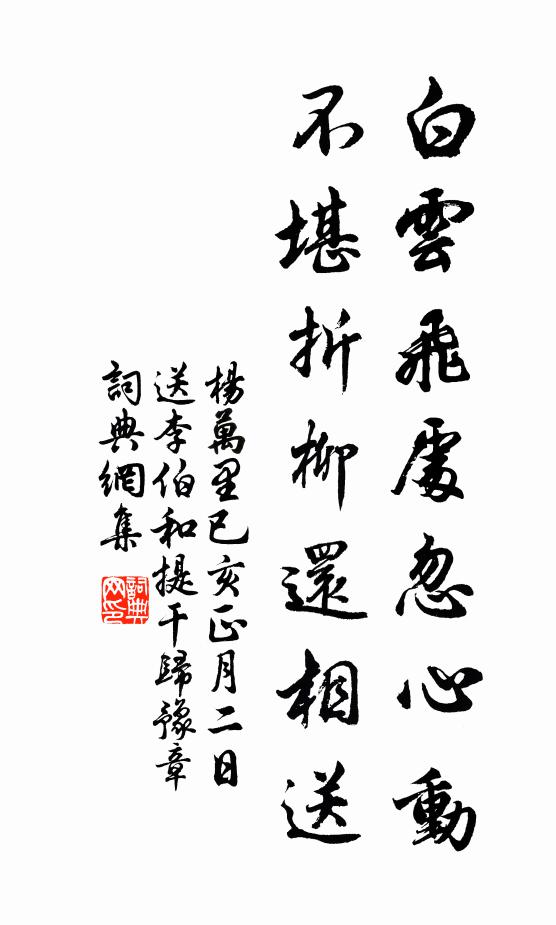 白雲飛處忽心動
不堪折柳還相送
楊萬里己亥正月二日
送李伯和提干歸豫章
詞典網集
詞典
网印